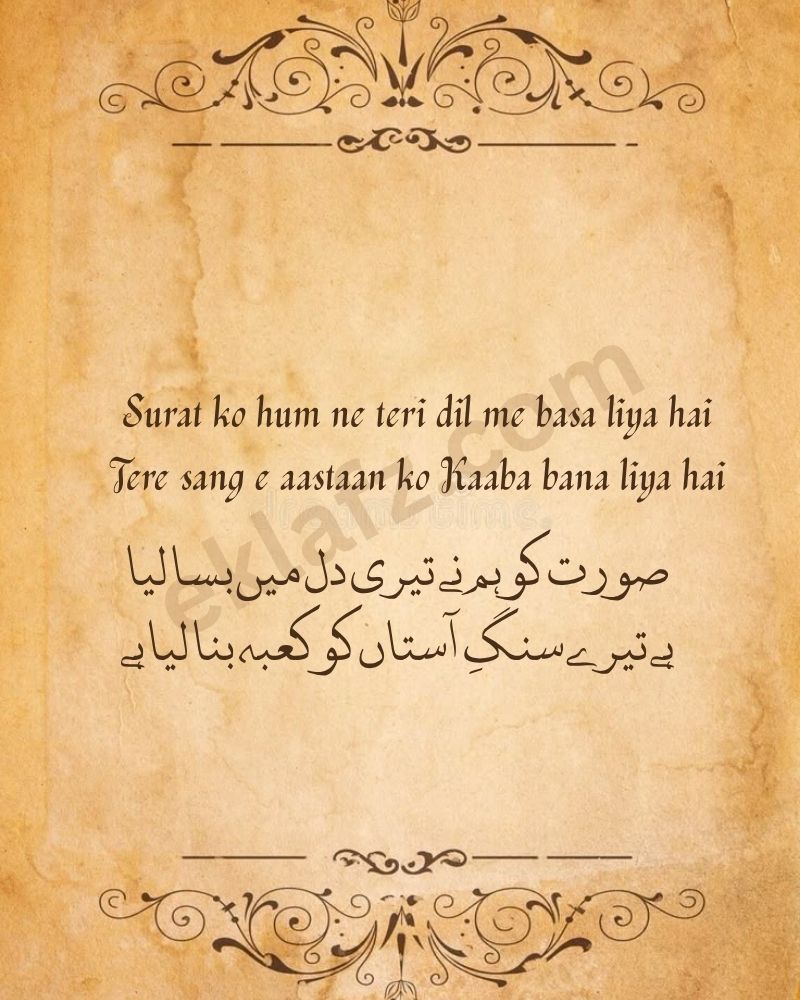 Surat ko hum ne teri dil me basa liya hai
Tere sang e aastaan ko Kaaba bana liya hai
صورت کو ہم نے تیری دل میں بسا لیا
ہے تیرے سنگِ آستاں کو کعبہ بنا لیا ہے
eklafz.com